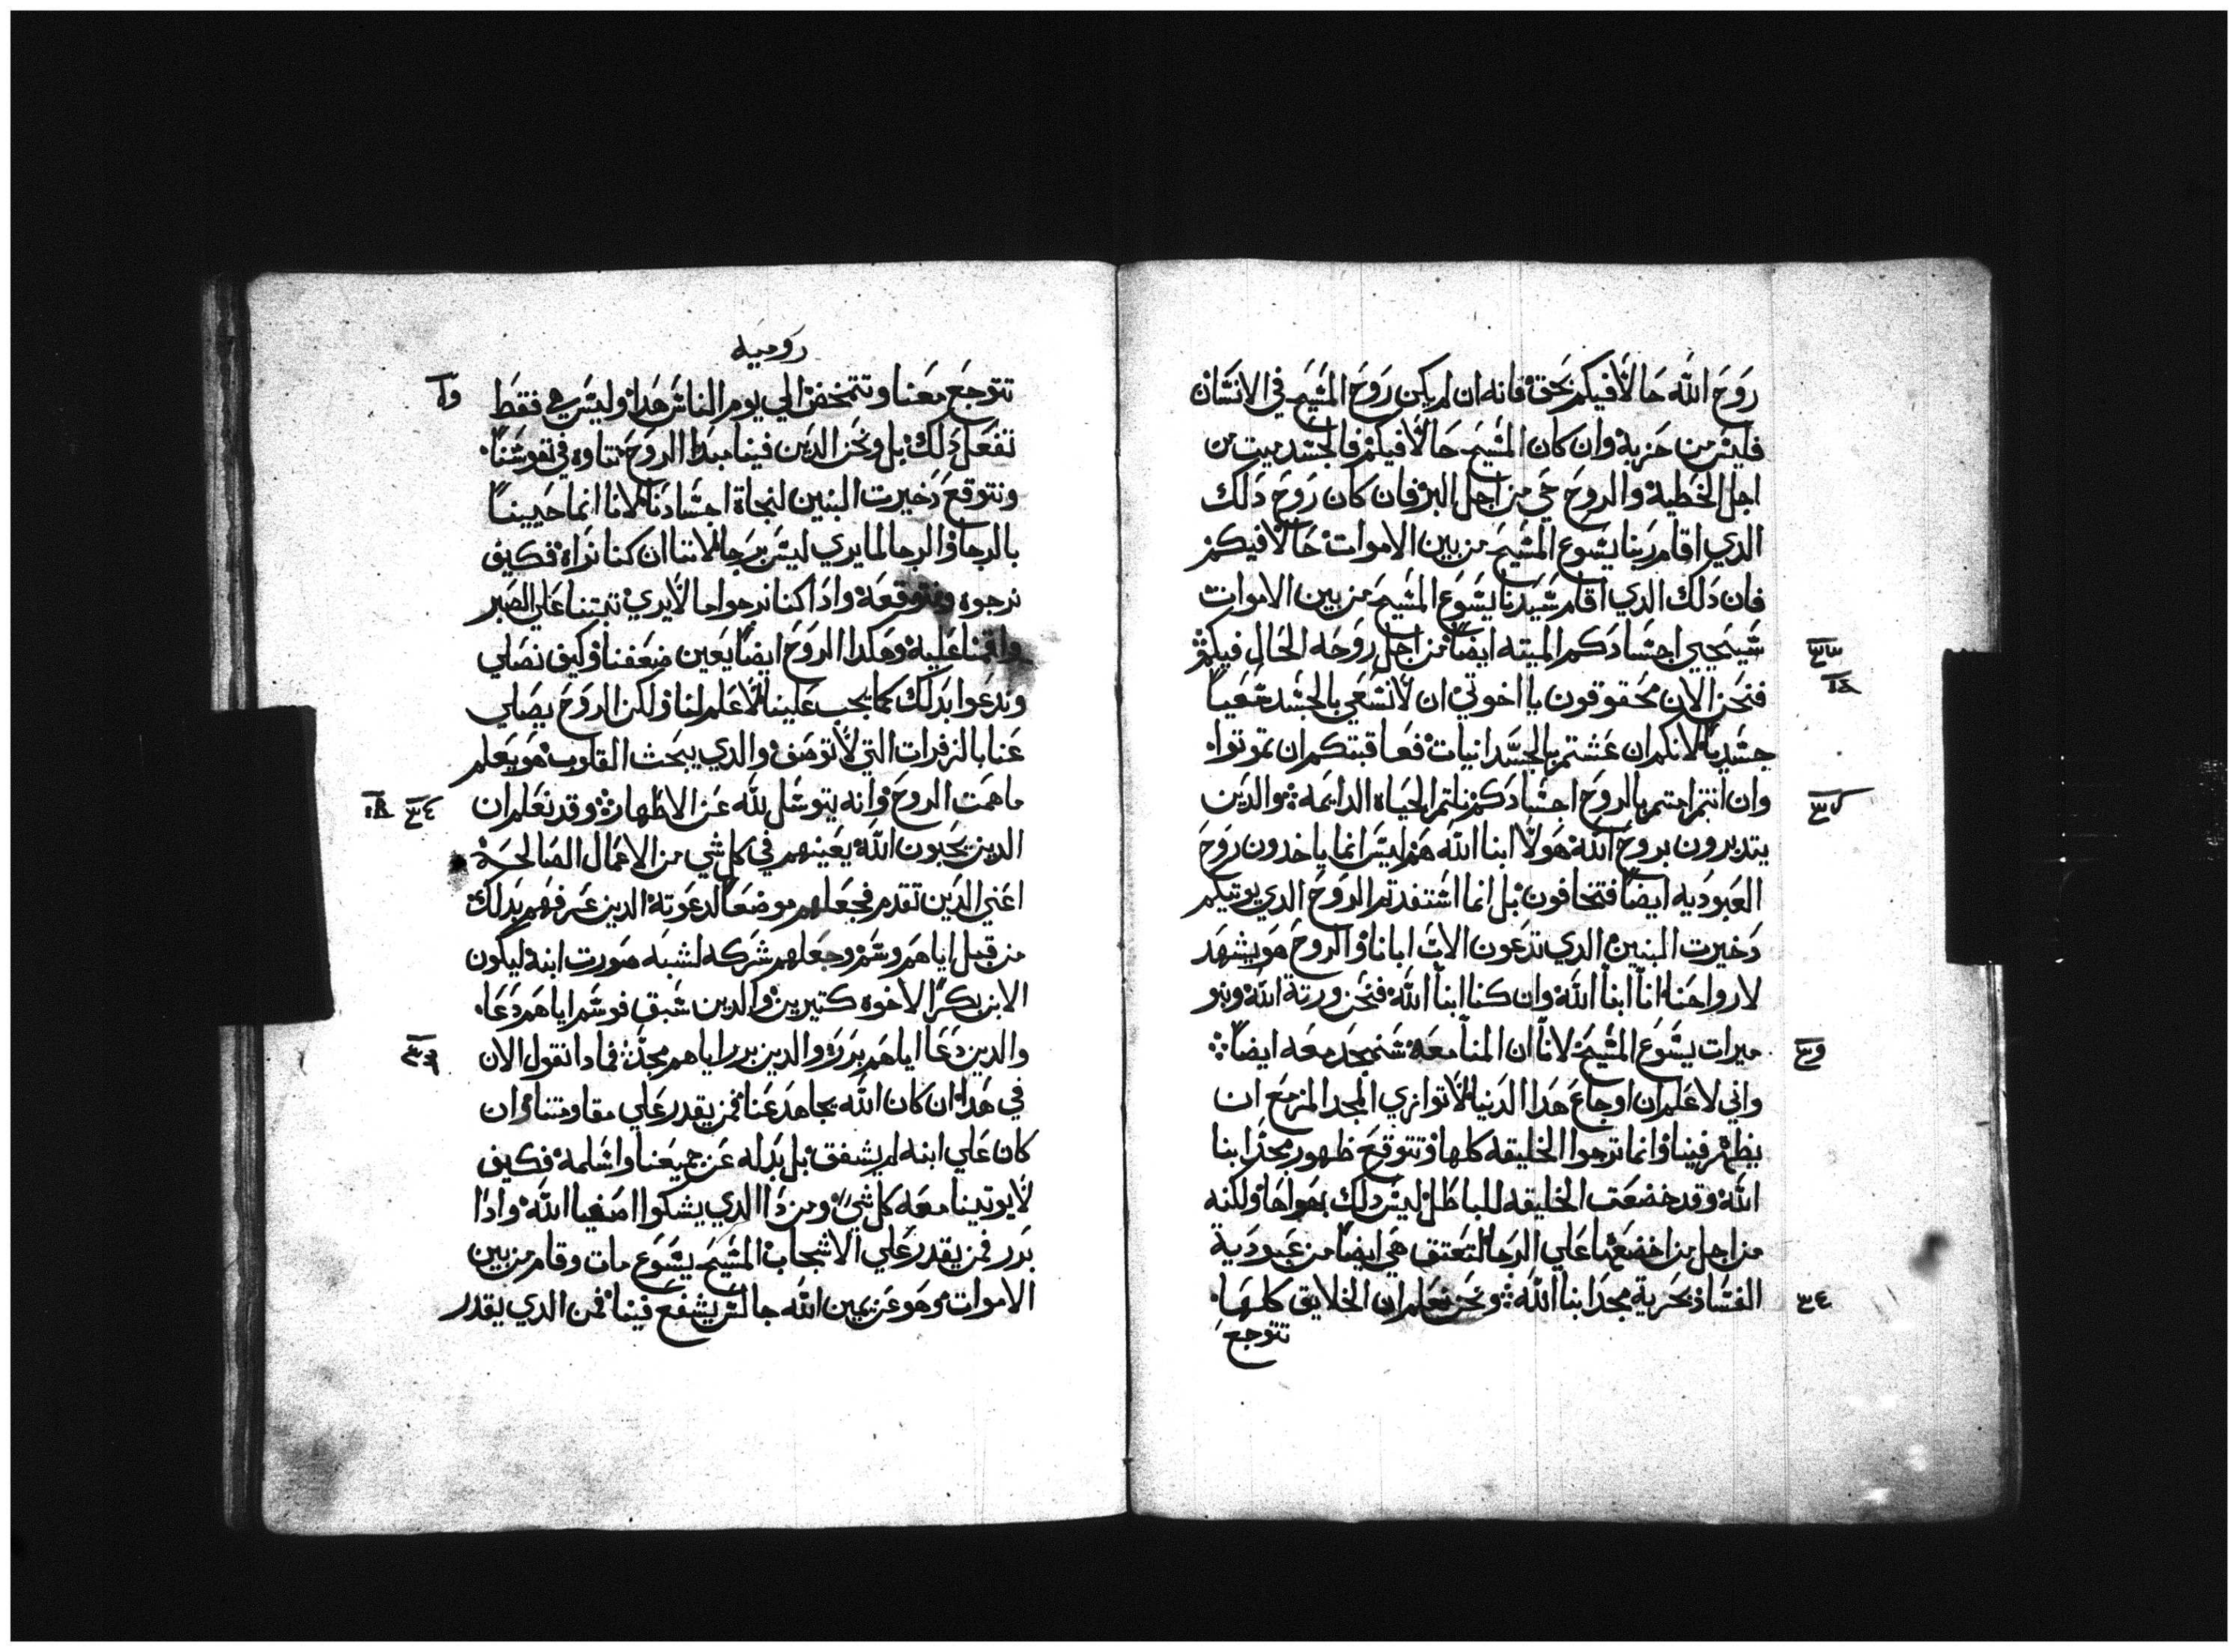 روح الله حالا فيكم بحق فانه ان لم يكن روح المسيح في الانسان
فليس من حزبه وان كان المسيح حالا فيكم فالجسد ميت من
اجل الخطية والروح حي من اجل البر فان كان روح دلك
الدي اقام ربنا يسوع المسيح من بين الاموات حالا فيكم
فان دلك الدي اقام سيدنا يسوع المسيح من بين الاموات
سيحيي اجسادكم الميته ايضا من اجل روحه الحال فيكم
فنحن الان محقوقون يا اخوتي ان لا نسعي بالجسد سعيا
جسديا لانكم ان عشتم بالجسدانيات فعاقبتكم ان تموتوا
وان انتم امتم بالروح اجسادكم نلتم الحياه الدايمه والدين
يتدبرون بروح الله هولا ابنا الله هم ليس انما ياخدون روح
العبوديه ايضا فتخافون بل انما استفدتم الروح الدي يوتيكم
دخيرت البنين الدي تدعون الاب ابانا والروح هو يشهد
لارواحنا انا ابنا الله وان كنا ابنا الله فنحن ورتة الله وبنو
ميرات يسوع المسيح لانا ان المنا معه سنمجد معه ايضا
واني لاعلم ان اوجاع هدا الدنيا لا توازي المجد المزمع ان
يظهر فينا وانما ترجوا الخليقه كلها وتتوقع ظهور مجد ابنا
الله وقد خضعت الخليقه للباطل ليس دلك بهواها ولكنه
من اجل من اخضعها علي الرجا لتعتق هي ايضا من عبودية
الفساد بحرية مجد ابنا الله ونحن نعلم ان الخلايق كلها
تتوجع
روميه
تتوجع معنا وتتمخض الي يوم الناس هدا وليس هي فقط
تفعل دلك بل ونحن الدين فينا مبدا الروح نتاوه في نفوسنا
ونتوقع دخيرت البنين لنجاة اجسادنا لانا انما حيينا
بالرجا والرجا لما يري ليس برجا لاننا ان كنا نراه فكيف
نرجوه ونتوقعه وادا كنا نرجوا ما لا يري تبتنا علي الصبر
واقمنا عليه وهكدا الروح ايضا يعين ضعفنا وكيف نصلي
وندعوا بدلك كما يجب علينا لا علم لنا ولكن الروح يصلي
عنا بالزفرات التي لا توصف والدي يبحث القلوب هو يعلم
ما همت الروح وانه يتوسل لله عن الاطهار وقد نعلم ان
الدين يحبون الله يعينهم في كل شي من الاعمال الصالحة
اعني الدين تقدم فجعلهم موضعا لدعوته الدين عرفهم بدلك
من قبل اياهم وسم وجعلهم شركه لشبه صورت ابنه ليكون
الابن بكر الاخوه كتيرين والدين سبق فوسم اياهم دعا
والدين دعا اياهم برر والدين برر اياهم مجد فمادا نقول الان
في هدا ان كان الله يجاهد عنا فمن يقدر علي مقاومتنا وان
كان علي ابنه لم يشفق بل بدله عن جميعنا واسلمه فكيف
لا يوتينا معه كل شي ومن دا الدي يشكوا اصفيا الله وادا
برر فمن يقدر علي الاشجاب المسيح يسوع مات وقام من بين
الاموات وهو عن يمين الله جالس يشفع فينا فمن الدي يقدر